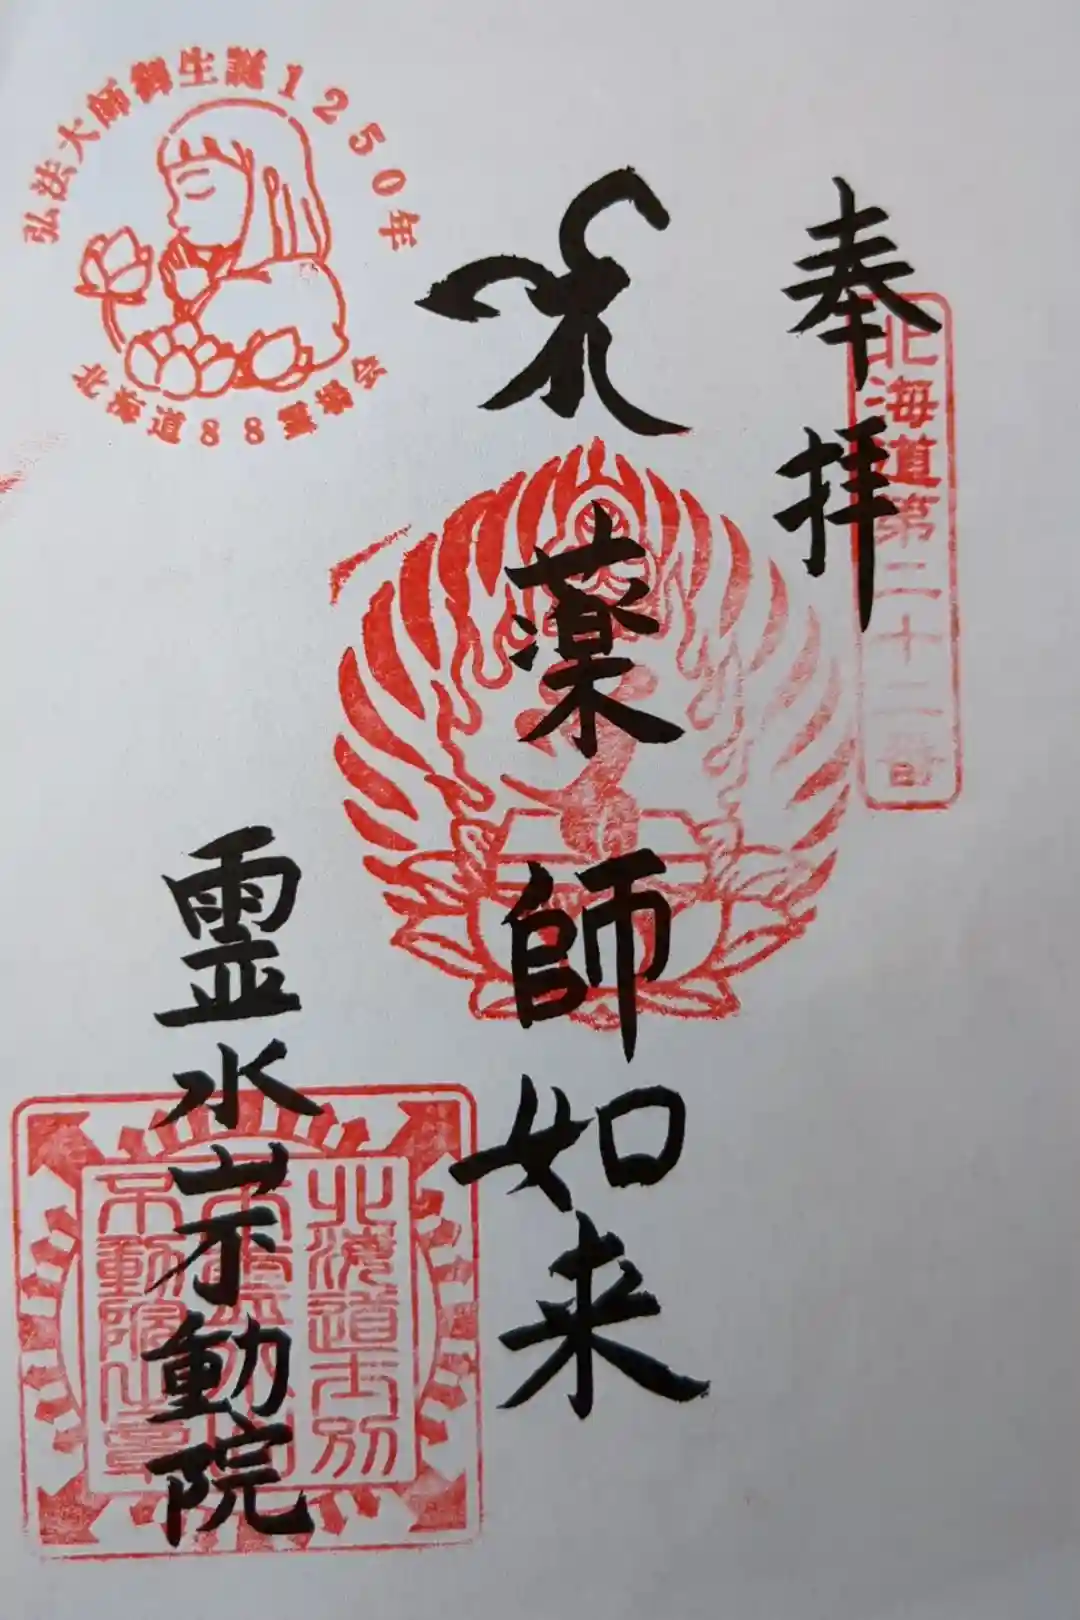 奉拝
北海道第二十二番
薬師如来
弘法大師御生誕1250年
北海道88霊場会
霊水山不動院
北海道士別
不動院